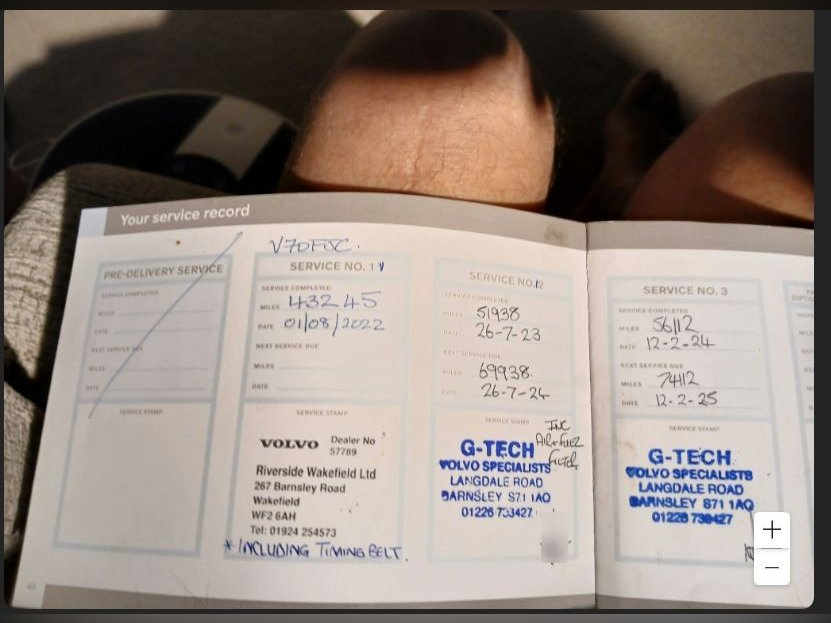 Your service record
PRE-DELIVERY SERVICE
SERVICE COMPLETED
MILES
DATE
NEXT SERVICE DUE
MILES
DATE
SERVICE STAMP
V70FSC.
SERVICE NO. 1
SERVICE COMPLETED
MILES 43245
DATE 01/08/2022
NEXT SERVICE DUE
MILES
DATE
SERVICE STAMP
VOLVO Dealer No
57789
Riverside Wakefield Ltd
267 Barnsley Road
Wakefield
WF2 6AH
Tel: 01924 254573
* INCLUDING TIMING BELT.
SERVICE NO. 2
SERVICE COMPLETED
MILES 51938
DATE 26-7-23
NEXT SERVICE DUE
MILES 69938
DATE 26-7-24
SERVICE STAMP
INC
AIR+FUEL
FILTER
G-TECH
VOLVO SPECIALISTS
LANGDALE ROAD
BARNSLEY S71 1AQ
01226 733427
SERVICE NO. 3
SERVICE COMPLETED
MILES 56112
DATE 12-2-24
NEXT SERVICE DUE
MILES 74112
DATE 12-2-25
SERVICE STAMP
G-TECH
VOLVO SPECIALISTS
LANGDALE ROAD
BARNSLEY S71 1AQ
40